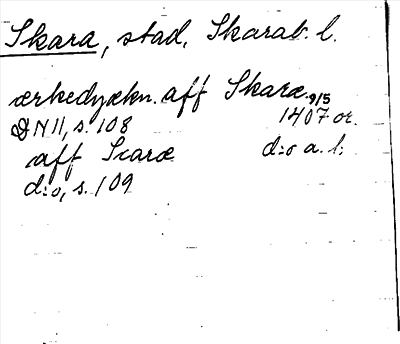 Skara, stad, Skarab. l.
ærkedyækn. aff Skaræ 9/5
DN II, s. 108 1407 or.
aff Scaræ d:o a. l.
d:o, s. 109